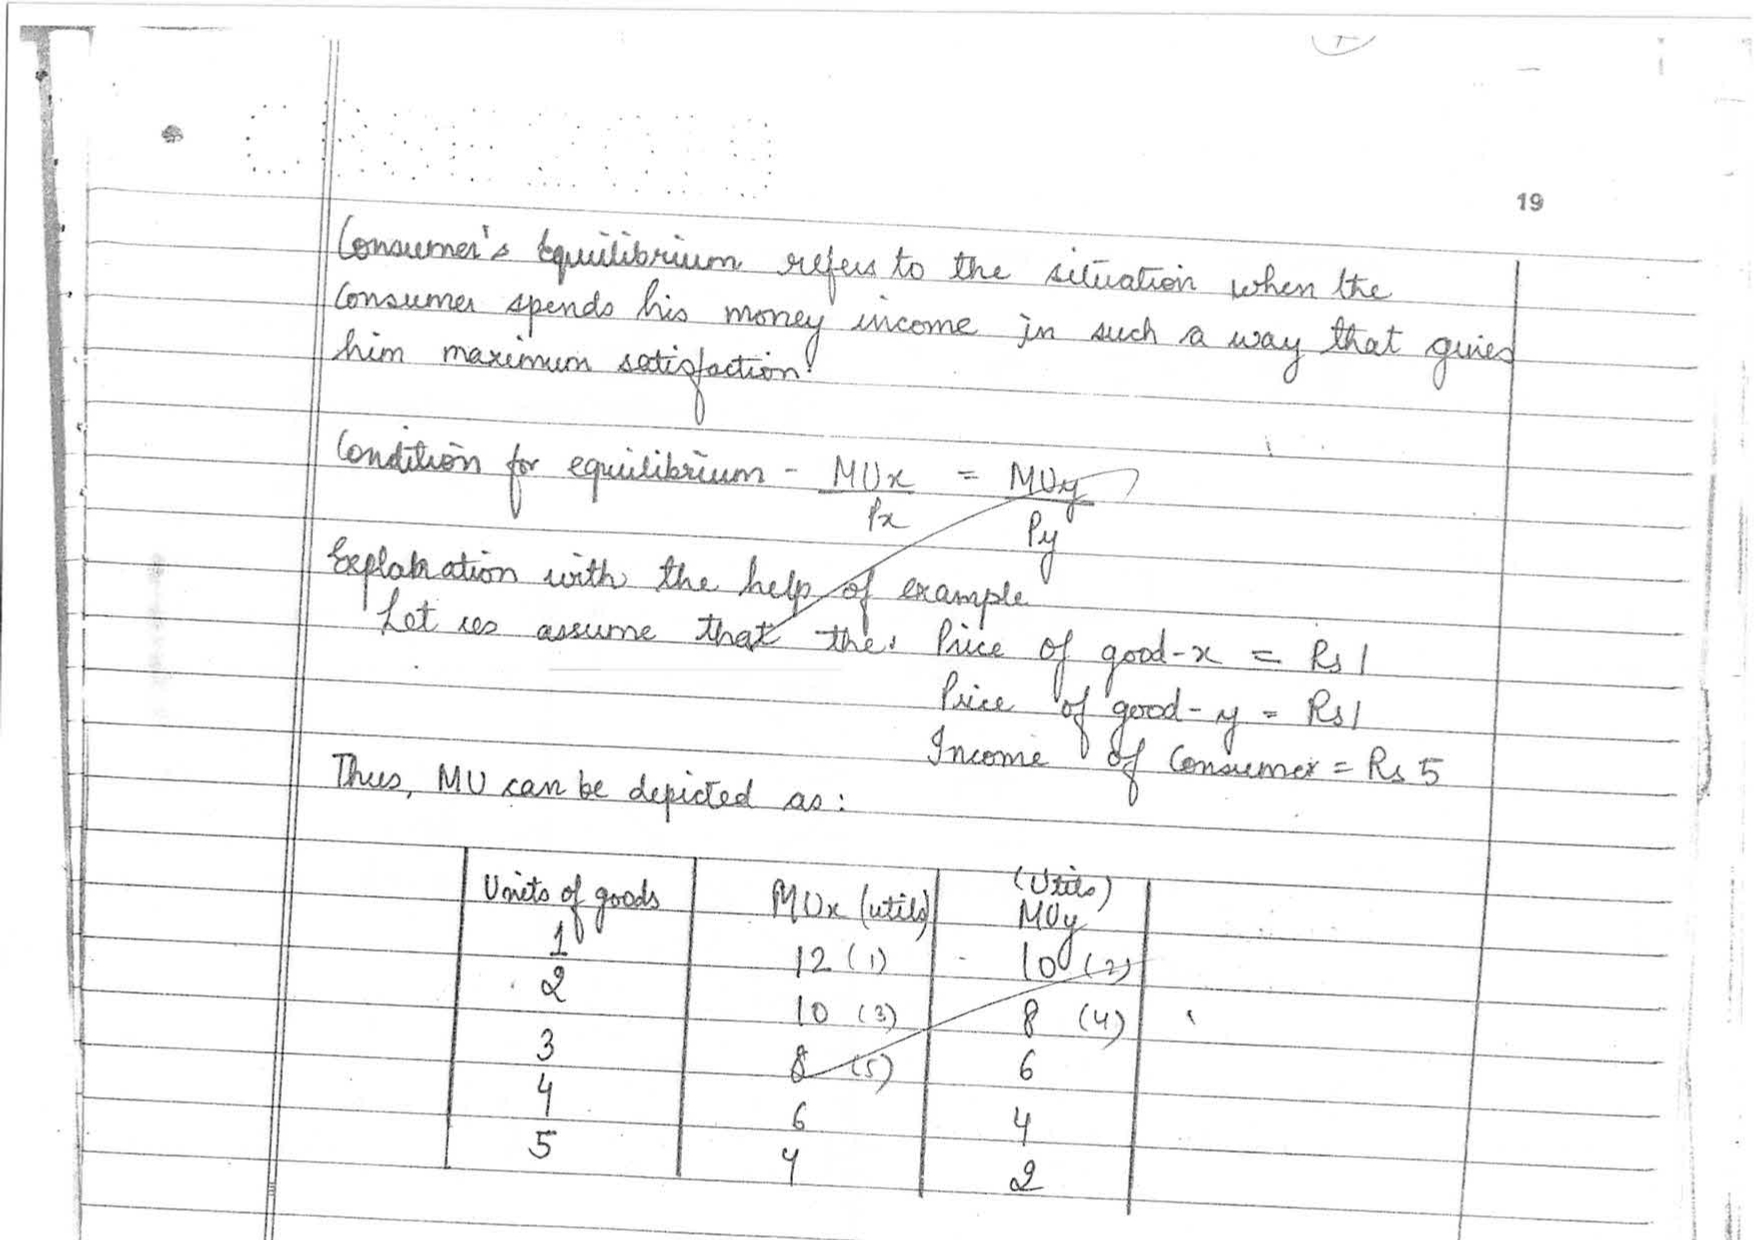 CBSE 2019
19
Consumer's Equilibrium refers to the situation when the
Consumer spends his money income in such a way that gives
him maximum satisfaction.
Condition for equilibrium - MUx = MUy
Px Py
Explanation with the help of example
Let us assume that the. Price of good-x = Rs 1
Price of good-y = Rs 1
Income of Consumer = Rs 5
Thus, MU can be depicted as:
Units of goods MUx (utils) (Utils) MUy
1 12 (1) 10 (2)
2 10 (3) 8 (4)
3 8 (5) 6
4 6 4
5 4 2